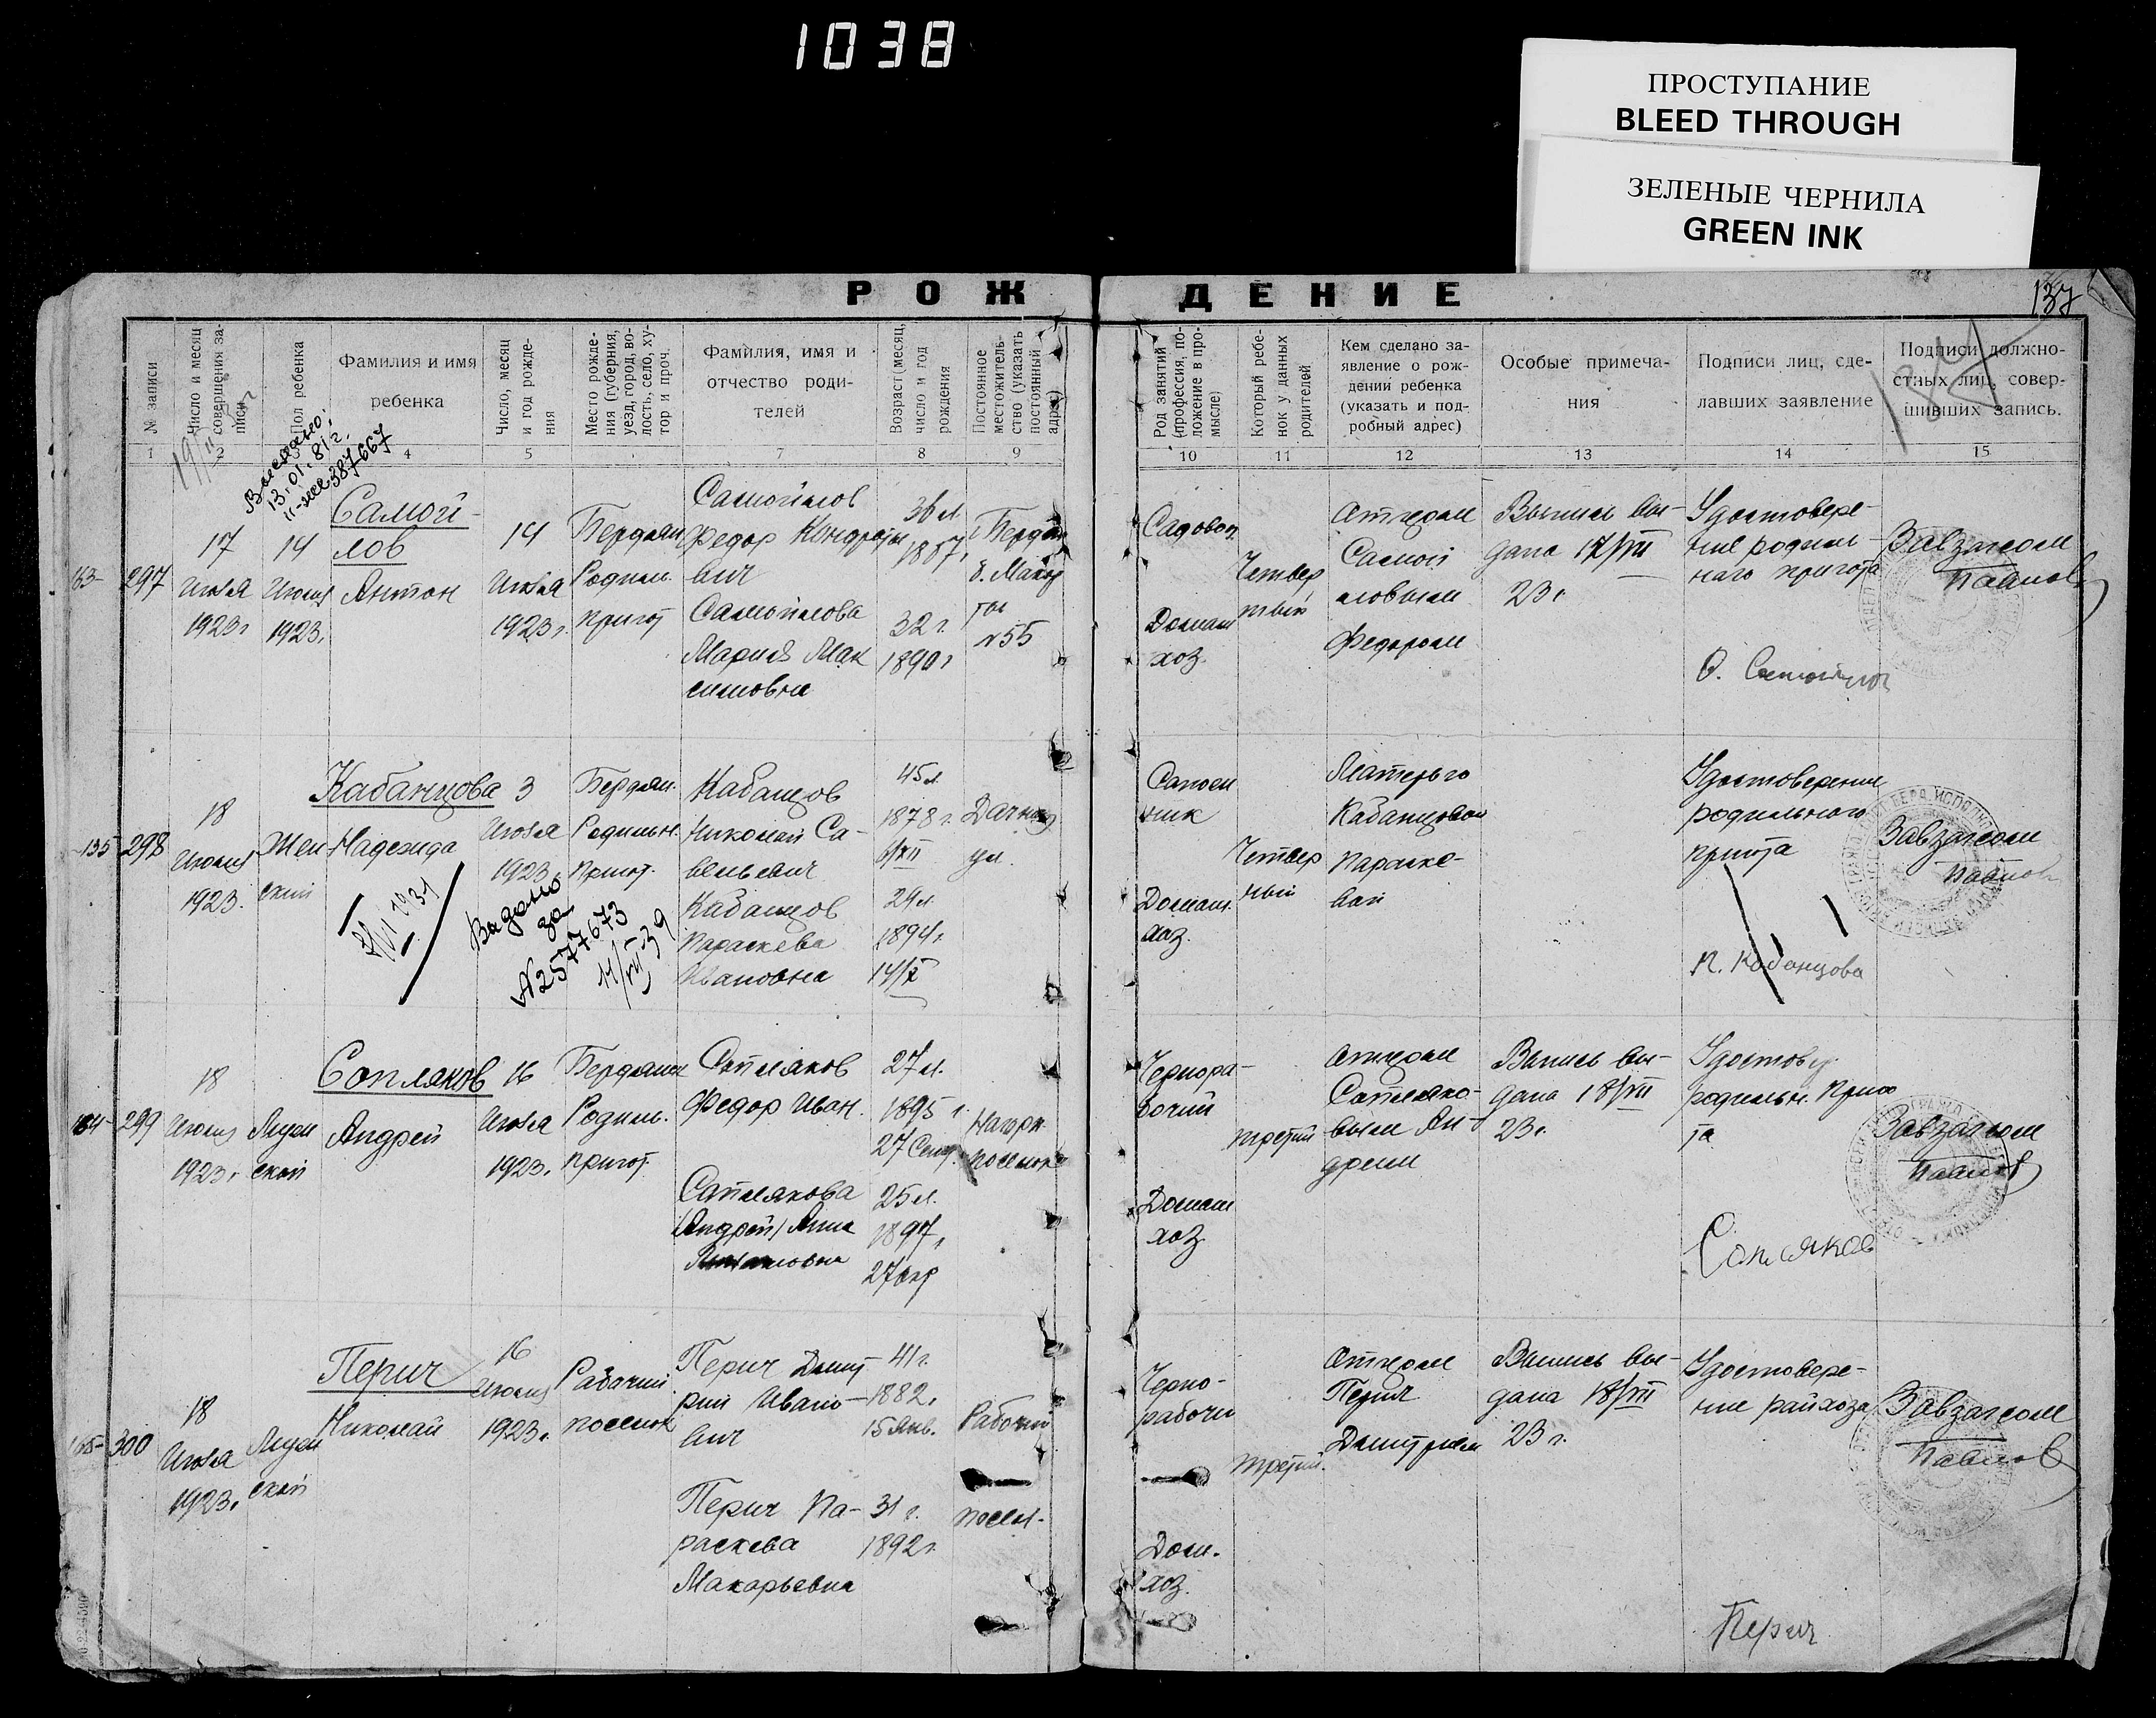 1038
ПРОСТУПАНИЕ
BLEED THROUGH
ЗЕЛЕНЫЕ ЧЕРНИЛА
GREEN INK
РОЖДЕНИЕ
137
№ записи
Число и месяц совершения за-
писи
Пол ребенка
Фамилия и имя
ребенка
Число, месяц
и год рожде-
ния
Место рожде-
ния (губерния,
уезд, город, во-
лость, село, ху-
тор и проч.
Фамилия, имя и
отчество роди-
телей
Возраст (месяц,
число и год
рождения
Постоянное
местожитель-
ство (указать
постоянный
адрес)
Род занятий
(профессия, по-
ложение в про-
мысле)
Который ребе-
нок у данных
родителей
Кем сделано за-
явление о рож-
дении ребенка
(указать и под-
робный адрес)
Особые примеча-
ния
Подписи лиц, сде-
лавших заявление
Подписи должно-
стных лиц, совер-
шивших запись.
1 2 4 5 7 8 9 10 11 12 13 14 15
13.01.81г.
387667
297
17
Июля
1923г
14
Июля
1923г
Самой-
лов
Антон
14
Июля
1923г.
Бердян
Родил.
приют
Самойлов
Федор Кондрать
вич
Самойлова
Мария Мак
симовна
36 л
1887г
32 г.
1890г
Бердян
№55
Садовод
Домаш
хоз.
Четвер
тый
Отцом
Самой
ловым
Федором
Выпись вы-
дана 17/VII
23г.
Удостовере-
ние родиль-
наго приюта
Завзагсом
Павлов
298
18
Июля
1923.
Жен
ский
Кабанцова
Надежда
3
Июля
1923г.
Бердян.
Родильн.
Приют.
Кабанцов
Николай Са-
вельевич
Кабанцов
Параскева
Ивановна
45л.
1878г.
6/XII
29л.
1894г.
14/X
Дачная
ул.
Сапож
ник
Домаш.
хоз.
Четвер
тый
Матерью
Кабанцовой
Параске-
вой
Удостоверение
родильного
приюта
П. Кабанцова
Завзагсом
Павлов
Выдано
за
N2577673
299
18
Июля
1923г.
Муж
ской
Сопляков
Андрей
16
Июля
1923г.
Бердянск
Родил.
приют.
Сопляков
Федор Иван.
Соплякова
(Андрей) Анна
27л.
1895 г.
27 Сент.
25л.
1897г
Нагорн.
поселок
Чернора-
бочий
Домаш
хоз.
третий
Отцом
Сопляко-
вым Ан-
дреем
Выпись вы-
дана 18/VII
23г.
Удостовер.
родильн. Прию
та
Сопляков
Завзагсом
Павлов
300
18
Июля
1923г
Муж
ской
Перич
Николай
16
Июля
1923г.
Рабочий
поселок
Перич Дмит
рий Ивано-
вич
Перич Па-
раскева
Макарьевна
41г.
1882г
15 Янв.
31 г.
1892г.
Рабочий
посел.
Черно-
рабочи
Дом.
хоз.
третий.
Отцом
Перич
Дмитрием
Выпись вы-
дана 18/VII
23г.
Удостовере-
ние райхоза
Перич
Завзагсом
Павлов